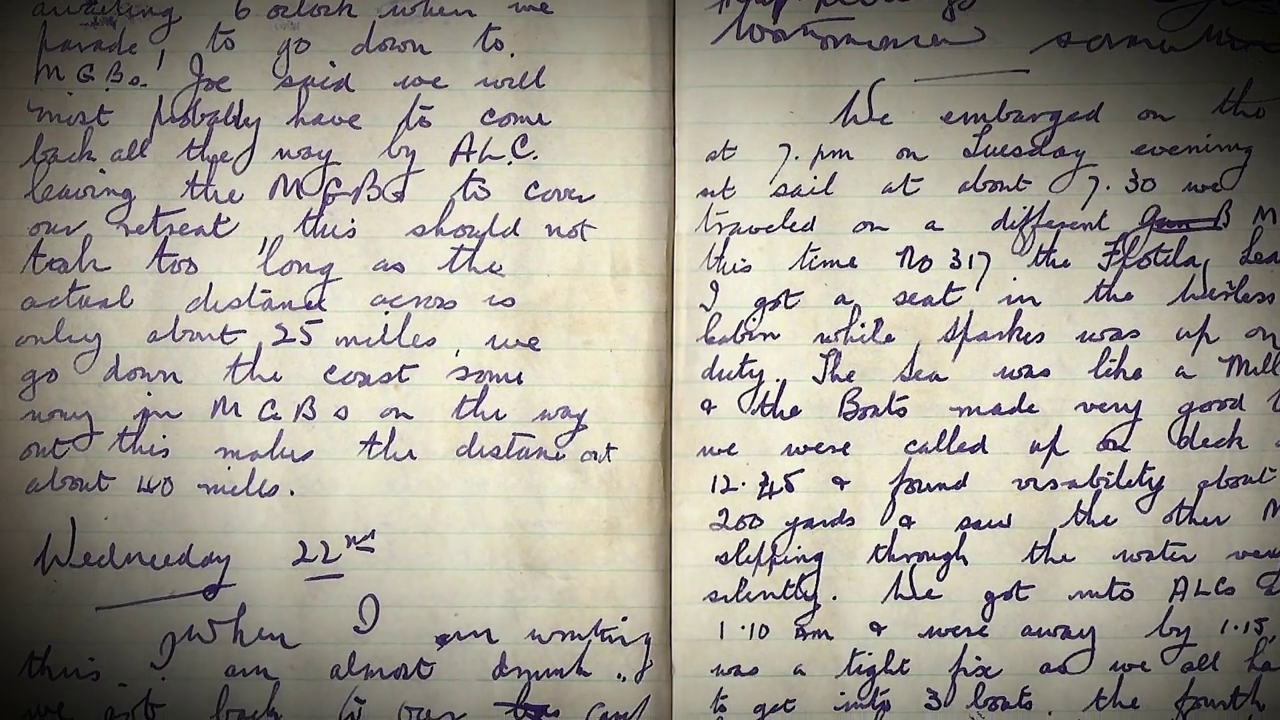 awaiting 6 oclock when we
parade, to go down to
M G Bs. Joe said we will
most probably have to come
back all the way by A.L.C.
leaving the M G Bs to cover
our retreat, this should not
take too long as the
actual distance across is
only about 25 milles, we
go down the coast some
way in M G B s on the way
out this makes the distance out
about 40 mills.
Wednesday 22nd
When I am writing
this I am almost drunk
we got back to our
We embarged on the
at 7. pm on Tuesday evening
sail at about 7.30 we
traveled on a different B M
this time No 317 the Flotila, Lea
I got a seat in the wirless
cabin while Sparkes was up on
duty. The Sea was like a Mill
& the Boats made very good
we were called up on deck
12.45 & found visability about
200 yards & saw the other M
slipping through the water very
silently. We got into ALCs
1.10 am & were away by 1.15,
was a tight fix as we all ha
to get into 3 boats. the fourth